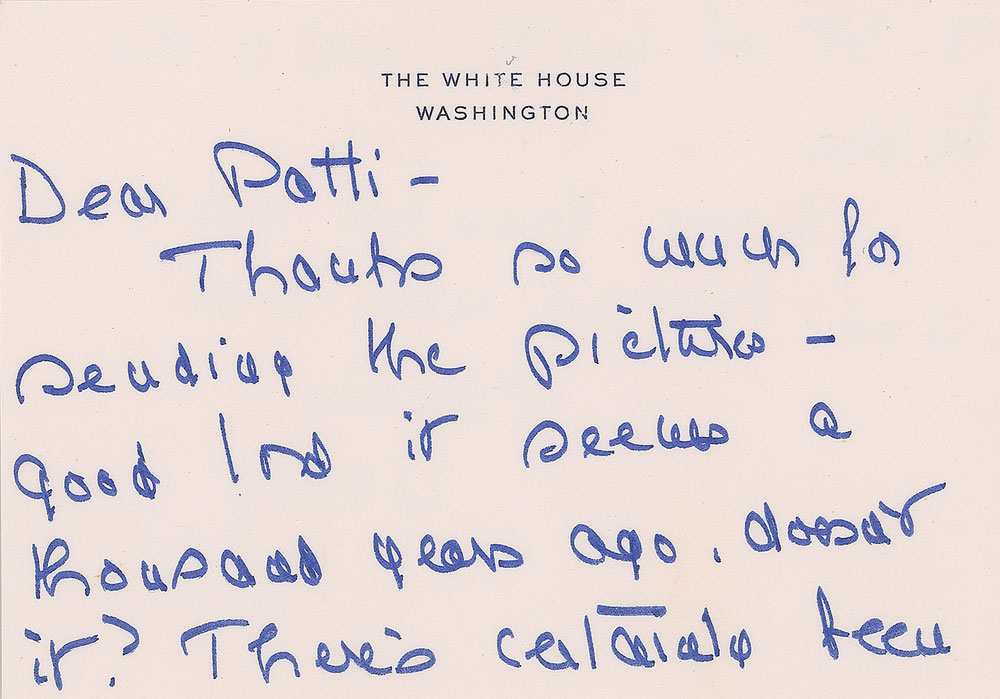 THE WHITE HOUSE
WASHINGTON
Dear Patti -
Thanks so much for
sending the pictures -
good lord it seems a
thousand years ago, doesn't
it? There's certainly been